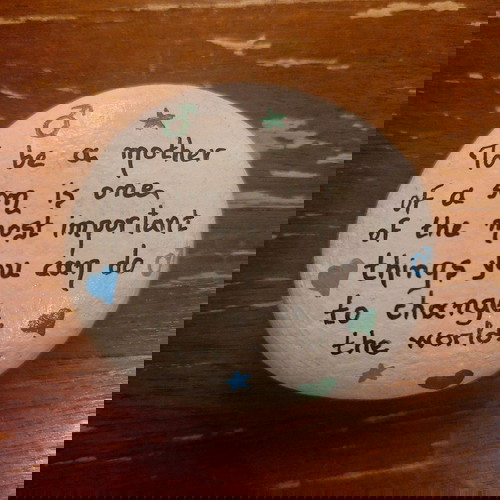 To be a mother
of a son is one
of the most important
things you can do
to change
the world.